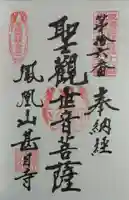 奉納経
第廿六番
聖觀世音菩薩
鳳凰山甚目寺